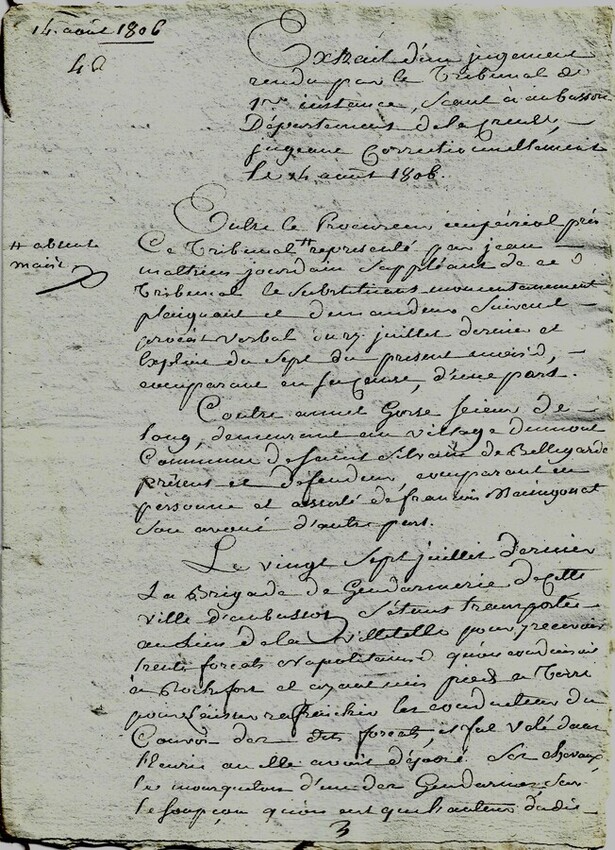 14 août 1806
Extrait d'un jugement
rendu par le Tribunal de
1ere instance, séant à aubusson
Département de la Creuse,
jugeant Correctionnellement
le 14 août 1806.
Entre le Procureur impérial près
# absent
Ce Tribunal # représenté par jean
maltrieu jourdain Suppléant de ce
Tribunal le substituant momentanement
plaignant et demandeur Suivant
procès verbal du 27 juillet dernier et
Exploit du sept du présent mois,
comparant en d'une part.
Contre annet Gorse scieur de
long, demeurant au village
Commune de saint Silvain de Bellegarde
présent et défendeur, comparant en
personne et assisté de francois Maingonnat
son avoué d'autre part.
Le vingt sept juillet dernier
La Brigade de Gendarmerie de cette
ville d'aubusson S'étant transportée
au lieu de la Villetelle pour y recevoir
trente forcats Napolitains qu'on conduisoit
à Rochefort et ayant mis pied à Terre
pour laisser rafraichir les conducteurs du
Convoi des dits forcats, il fut volé dans
l'Ecurie ou elle avoit déposé Ses chevaux,
le mousqueton d'un des Gendarmes, Sur
le soupçon qu'on eut que l'auteur dudit
3